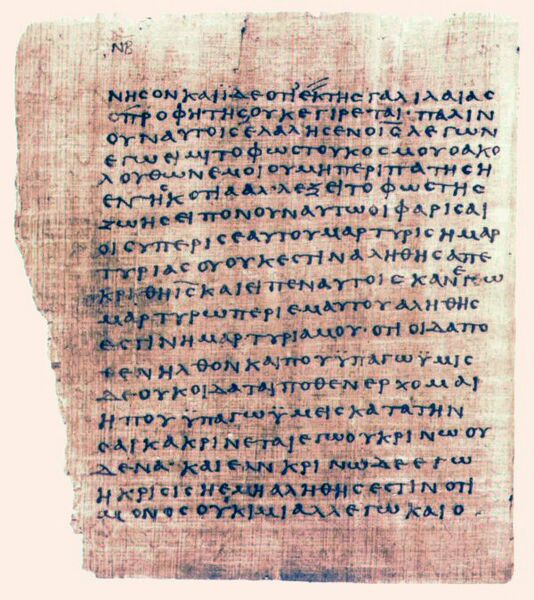 ΝΒ
ΝΗϹΟΝΚΑΙΪΔΕΟΤΙΕΚΤΗϹΓΑΛΙΛΑΙΑϹ
ΟΠΡΟΦΗΤΗϹΟΥΚΕΓΙΡΕΤΑΙ·ΠΑΛΙΝ
ΟΥΝΑΥΤΟΙϹΕΛΑΛΗϹΕΝΟΙ̅Ϲ̅ΛΕΓΩΝ
ΕΓΩΕΙΜΙΤΟΦΩϹΤΟΥΚΟϹΜΟΥΟΑΚΟ
ΛΟΥΘΩΝΕΜΟΙΟΥΜΗΠΕΡΙΠΑΤΗϹΗ
ΕΝΤΗϹΚΟΤΙΑΑΛΛΕΞΕΙΤΟΦΩϹΤΗϹ
ΖΩΗϹΕΙΠΟΝΟΥΝΑΥΤΩΟΙΦΑΡΙϹΑΙ
ΟΙϹΥΠΕΡΙϹΕΑΥΤΟΥΜΑΡΤΥΡΙϹΗΜΑΡ
ΤΥΡΙΑϹΟΥΟΥΚΕϹΤΙΝΑΛΗΘΗϹΑΠΕ
ΚΡΙΘΗΙ̅Ϲ̅ΚΑΙΕΙΠΕΝΑΥΤΟΙϹΚΑΝΕΓΩ
ΜΑΡΤΥΡΩΠΕΡΙΕΜΑΥΤΟΥΑΛΗΘΗϹ
ΕϹΤΙΝΗΜΑΡΤΥΡΙΑΜΟΥ·ΟΤΙΟΙΔΑΠΟ
ΘΕΝΗΛΘΟΝΚΑΙΠΟΥΫΠΑΓΩΫΜΙϹ
ΔΕΟΥΚΟΙΔΑΤΑΙΠΟΘΕΝΕΡΧΟΜΑΙ
ΗΠΟΥΫΠΑΓΩΫΜΕΙϹΚΑΤΑΤΗΝ
ϹΑΙΚΑΚΡΙΝΕΤΑΙΕΓΩΟΥΚΡΙΝΩΟΥ
ΔΕΝΑ·ΚΑΙΕΑΝΚΡΙΝΩΔΕΕΓΩ
ΗΚΡΙϹΙϹΗΕΜΗΑΛΗΘΗϹΕϹΤΙΝΟΤΙ
ΜΟΝΟϹΟΥΚΙΜΙΑΛΛΕΓΩΚΑΙΟ